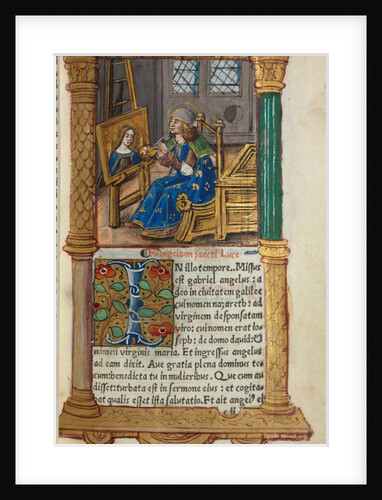 Evangelium sancti Luce
IN illo tempore.. Missus
est gabriel angelus: a
deo in ciuitatem galilee
cui nomen nazareth: ad
virginem desponsatam
viro: cui nomen erat io
seph: de domo dauid: &
nomen virginis maria. Et ingressus angelus
ad eam dixit. Aue gratia plena dominus te
cum: benedicta tu in mulieribus. Que cum au
disset: turbata est in sermone eius: et cogita
bat qualis esset ista salutatio. Et ait angel⁹ ei